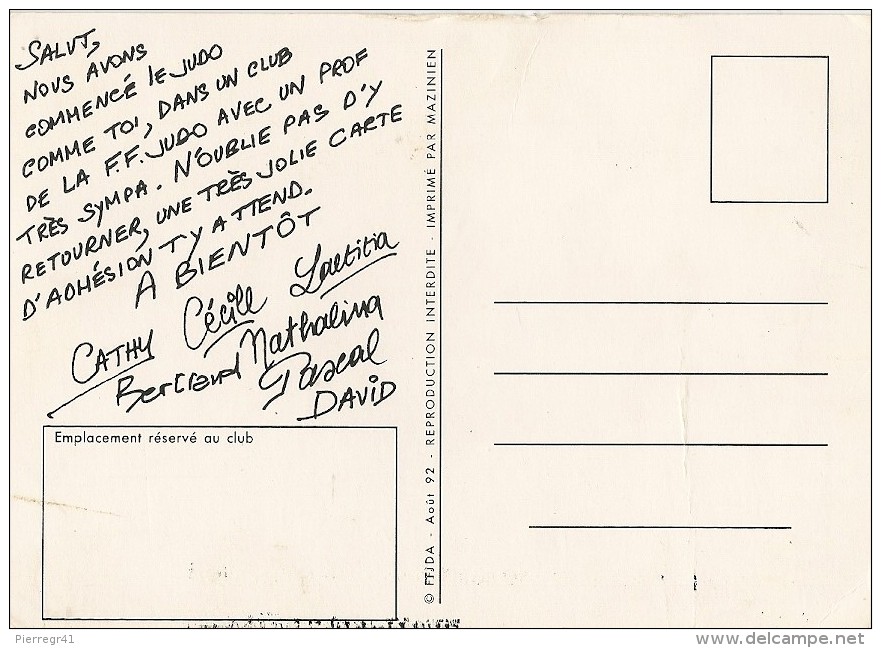 SALUT,
NOUS AVONS
COMMENCÉ LE JUDO
COMME TOI, DANS UN CLUB
DE LA F.F. JUDO AVEC UN PROF
TRÈS SYMPA. N'OUBLIE PAS D'Y
RETOURNER, UNE TRÈS JOLIE CARTE
D'ADHÉSION T'Y ATTEND.
A BIENTÔT
CATHY Cécill Laetitia
Bertrand Nathalina
Pascal
DAVID
Emplacement réservé au club
© FFJDA - Août 92 - REPRODUCTION INTERDITE - IMPRIMÉ PAR MAZINIEN
Pierregr41
www.delcampe.net